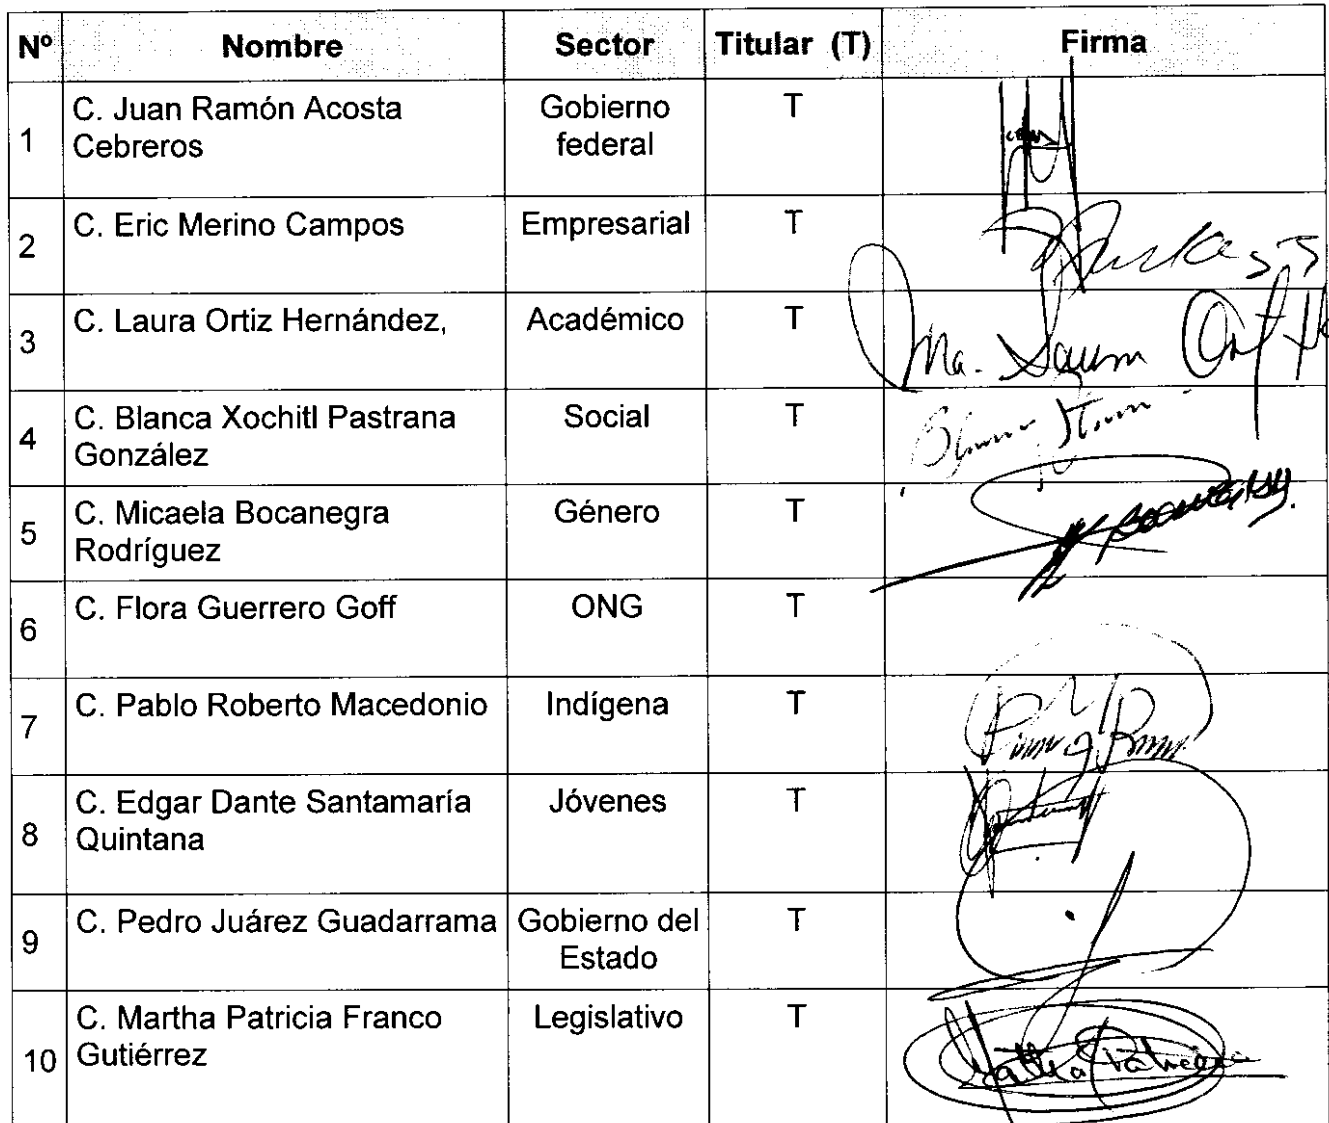 Nº Nombre Sector Titular (T) Firma
1 C. Juan Ramón Acosta Cebreros Gobierno federal T
2 C. Eric Merino Campos Empresarial T
3 C. Laura Ortiz Hernández, Académico T Ma. Laura Ortiz H
4 C. Blanca Xochitl Pastrana González Social T
5 C. Micaela Bocanegra Rodríguez Género T
6 C. Flora Guerrero Goff ONG T
7 C. Pablo Roberto Macedonio Indígena T
8 C. Edgar Dante Santamaría Quintana Jóvenes T
9 C. Pedro Juárez Guadarrama Gobierno del Estado T
10 C. Martha Patricia Franco Gutiérrez Legislativo T Martha Patricia